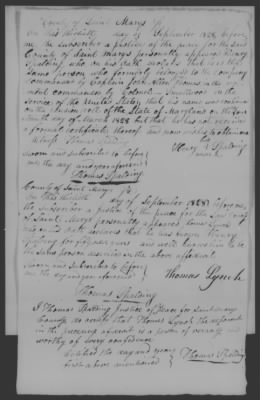 County of Saint Marys Ss.
On this thirtieth day of September 1828 before
me the subscriber a Justice of the peace for the said
County of Saint Marys personally appeared Henry
Spalding, who on his oath that he is the
same person who formerly belonged to the company
commanded by Captain John in the
regiment commanded by Colonel Smallwood in the
service of the United States, that his name was
on the pension roll of the State of Maryland on the
day of March 1828 but that he has not received
a certificate thereof and now
Thomas Spalding his
Henry X Spalding
mark
Sworn and subscribed to before
me the day and year aforesaid
Thomas Spalding
County of Saint Marys Ss.
On this thirtieth day of September 1828 before me,
the subscriber a Justice of the peace for the said County
of Saint Marys personally appeared Thomas Lynch
who on his oath declares that he has known Henry
Spalding for years and well knows him to be
the same person described in the above affidavit
Sworn and Subscribed to before
me the day and year aforesaid
Thomas Lynch
Thomas Spalding
I Thomas Spalding Justice of Peace for Saint Marys
County do certify that Thomas Lynch the deponent
in the preceding affidavit is a person of veracity and
worthy of every confidence
Certified the day and year
first above mentioned
Thomas Spalding